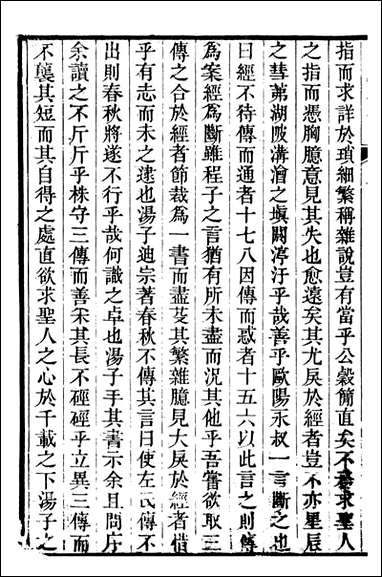 指而求詳於瑣細繁稱雜說豈有當乎公穀簡直矣不務求聖人
之指而憑胸臆意見其失也愈遠矣其尤戾於經者豈不亦星辰
之彗茀湖陂溝澮之塡闕渟汙乎哉善乎歐陽永叔一言斷之也
曰經不待傳而通者十七八因傳而惑者十五六以此言之則傳
爲案經爲斷雖程子之言猶有所未盡而況其他乎吾嘗欲取三
傳之合於經者節裁爲一書而盡芟其繁雜臆見大戾於經者惜
乎有志而未之逮也湯子迪宗著春秋不傳其言曰使左氏傳不
出則春秋將遂不行乎哉何識之卓也湯子手其書示余且問序
余讀之不斤斤乎株守三傳而善宋其長不硜硜乎立異三傳而
不襲其短而其自得之處直欲求聖人之心於千載之下湯子之